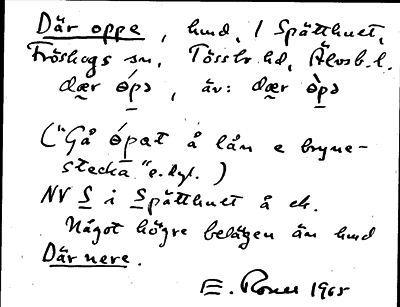 Där oppe, hmd, / Spätthuet,
Fröskogs sn, Tössbo hd, Älvsb. l.
dær ópə, äv: dær òpə
("Gå ópat å lån e bryne-
stecka" e.dyl.)
NV S i Spätthuet å ek.
Något högre belägen än hmd
Där nere.
E. 1965